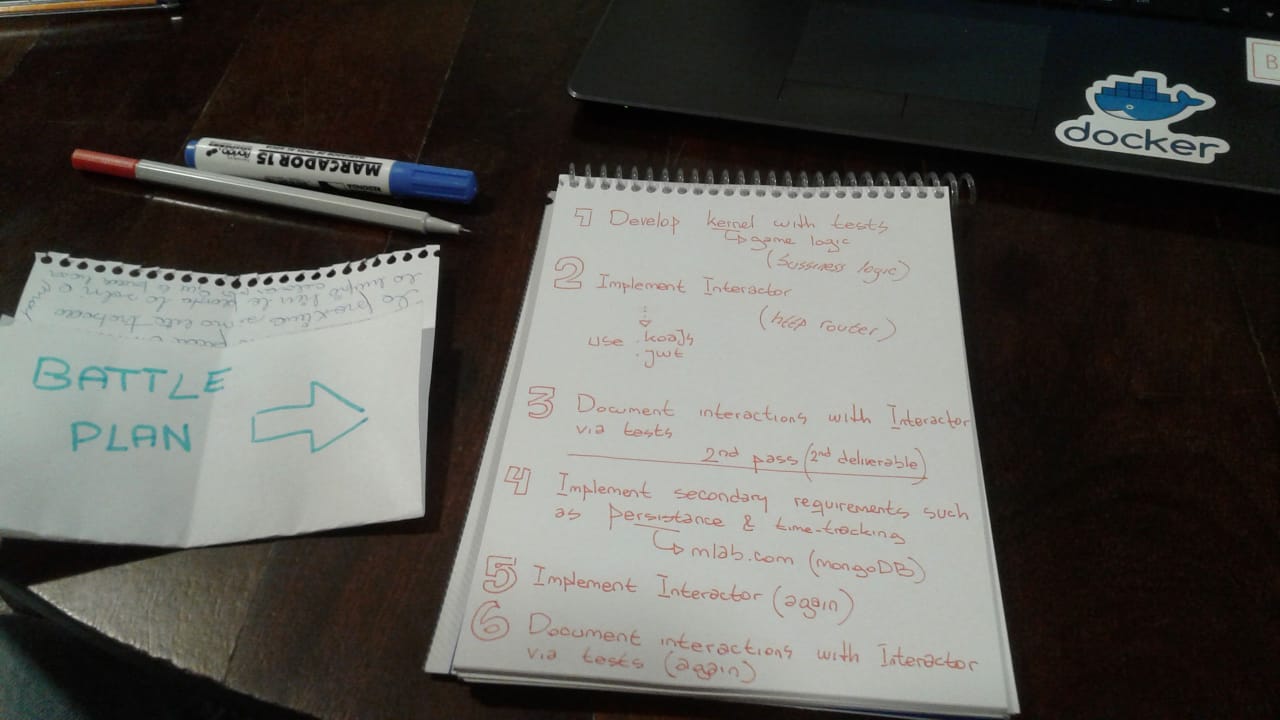 MARCADOR 15
docker
B
BATTLE
PLAN
1 Develop kernel with tests
game logic
(bussiness logic)
2 Implement Interactor
(http router)
use . koaJs
. jwt
3 Document interactions with Interactor
via tests
2nd pass (2nd deliverable)
4 Implement secondary requirements such
as persistance & time-tracking
mlab.com (mongoDB)
5 Implement Interactor (again)
6 Document interactions with Interactor
via tests (again)